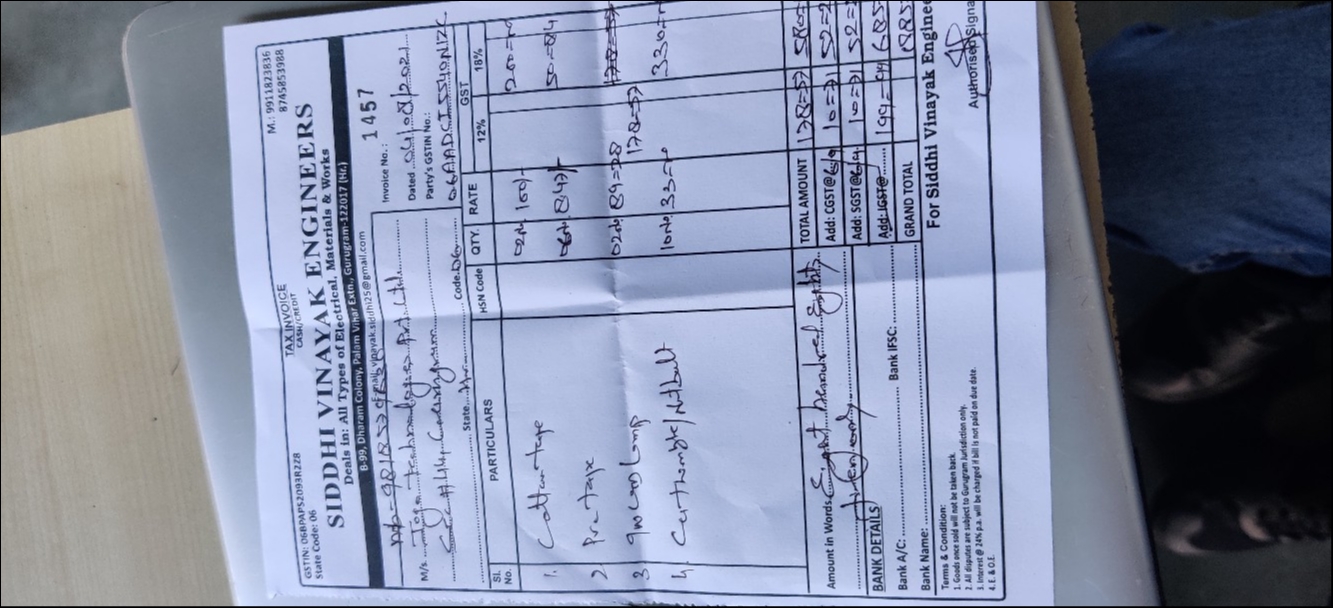 GSTIN: 06BPAPS2093R2Z8
State Code: 06
TAX INVOICE
CASH/CREDIT
M.: 9911823836
8745853988
SIDDHI VINAYAK ENGINEERS
Deals in: All Types of Electrical, Materials & Works
B-99, Dharam Colony, Palam Vihar Extn., Gurugram-122017 (Hr.)
Email: vinayak.siddhi25@gmail.com
Invoice No.: 1457
M/s. Technologies Pvt Ltd
Dated 04/08/2021
Party's GSTIN No.:
State Hr Code 06
SI. No. PARTICULARS HSN Code QTY. RATE GST
12% 18%
1. Cotton tape 02 100/- 200=00
2 Pvc tape 06 8.47/- 50=84
3 9w Led Lamp 02 89=28 178=57
4. 10 33=00 330=00
TOTAL AMOUNT 178=57
Amount in Words Eight hundred Eighty
Add: CGST@6% 10=71
Add: SGST@6% 10=71
Add: IGST@ 199=99
GRAND TOTAL
BANK DETAILS
Bank A/C: Bank IFSC:
Bank Name:
For Siddhi Vinayak Enginee
Terms & Condition:
1. Goods once sold will not be taken back.
2. All disputes are subject to Gurugram Jurisdiction only.
3. Interest @ 24% p.a. will be charged if bill is not paid on due date.
4. E. & O.E.
Authorised Signa